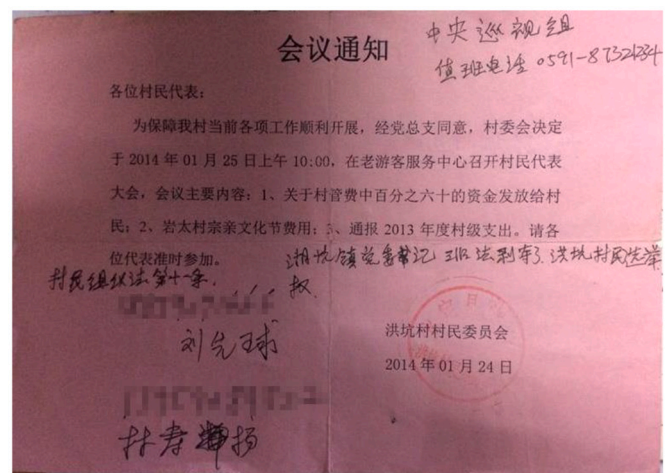 会议通知
中央巡视组
值班电话 0591-87321234
各位村民代表：
为保障我村当前各项工作顺利开展，经党总支同意，村委会决定
于 2014 年 01 月 25 日上午 10:00，在老游客服务中心召开村民代表
大会，会议主要内容：1、关于村管费中百分之六十的资金发放给村
民；2、岩太村宗亲文化节费用；3、通报 2013 年度村级支出。请各
位代表准时参加。
湖坑镇党委书记 剥夺了 洪坑村民选举
权
村民组织法第十一条
洪坑村村民委员会
2014 年 01 月 24 日
刘先球
林寿 扬